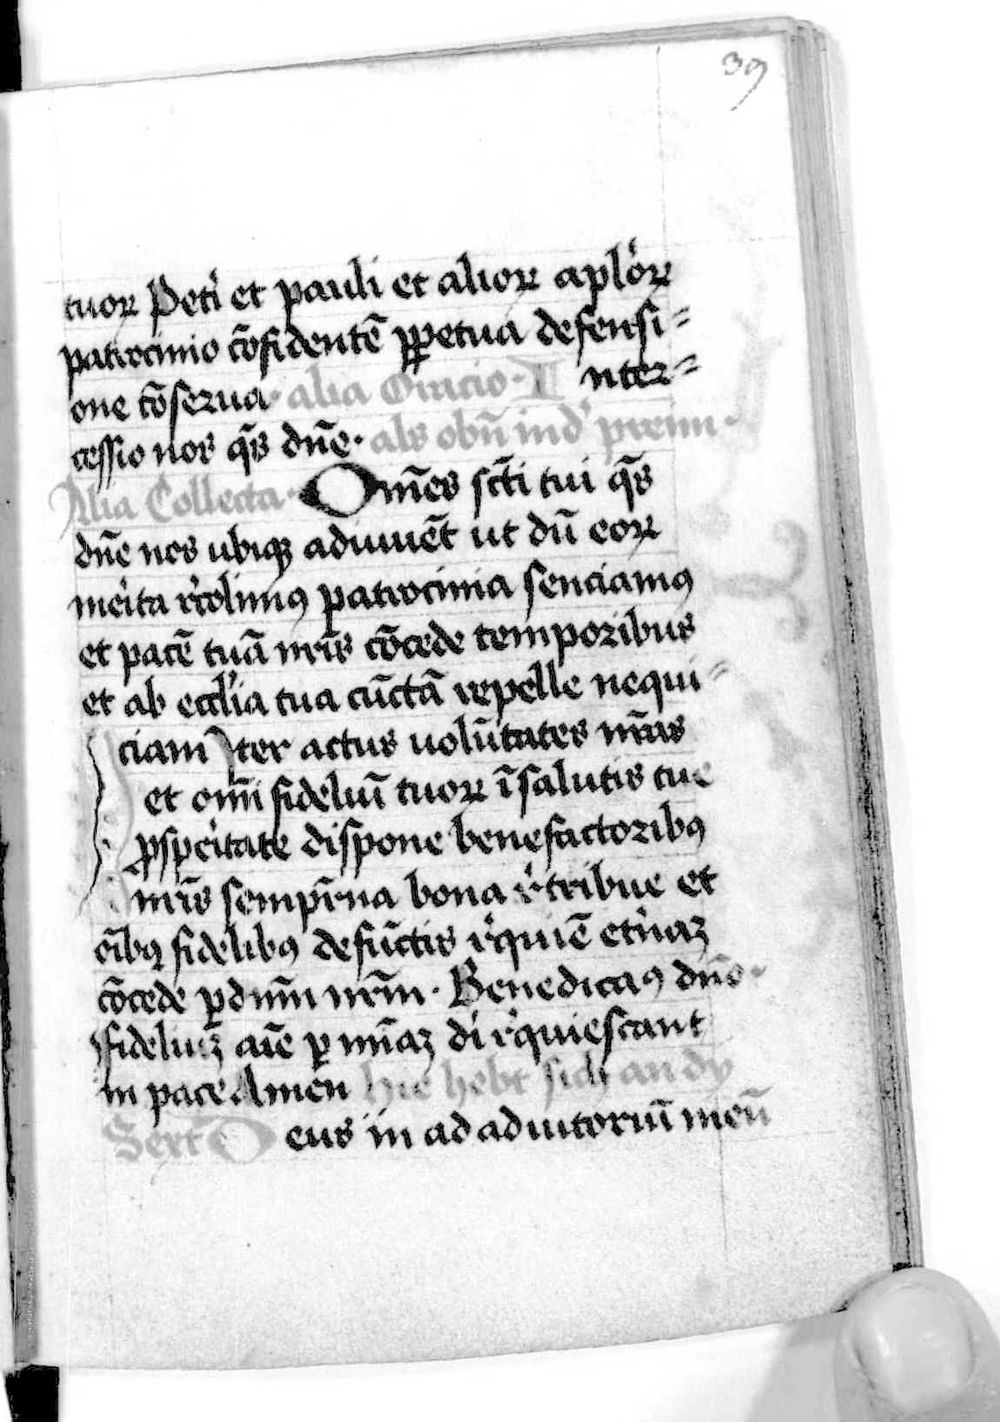 39
tuoꝝ Petri et pauli et alioꝝ aplōꝝ
patrocinio cōfidentē ꝑpetua defensi=
one cōserua· alia Oracio· I nter=
cessio nos qs̄ dn̄e· als obn̄ ind' prenn·
Alia Collecta· Omēs scti tui qs̄
dn̄e nos ubiqꝫ adiuuēt ut dū eoꝝ
merita rͨolimꝰ patrocinia senciamꝰ
et pacē tuā nrīs cōcede temporibus
et ab eccl'ia tua cūctā repelle nequi=
ciam Iter actus uolūtates nrās
et omī fideliuī tuoꝝ ī salutis tue
ꝓsperitate dispone benefactoribꝰ
nrīs sempīna bona rͤtribue et
oībꝫ fidelibꝰ defūctis rͤquiē etnaꝫ
cōcede ꝑ dnm̄ nrm̄· Benedicaꝰ dn̄o·
fideliuꝫ aīe ꝑ mīaꝫ di rͤquiescant
in pace Amen Hie hebt sich an dy
Sext D eus in ad adiutoriuī meū